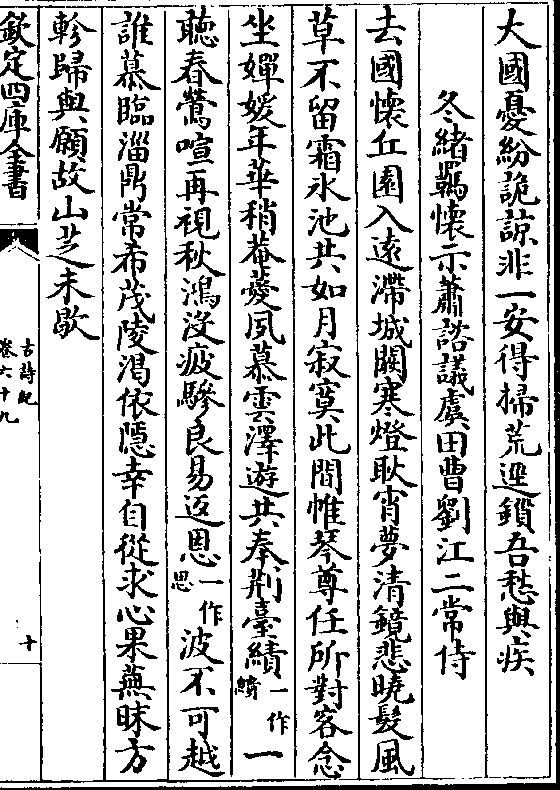 大國憂紛詭諒非一安得掃荒逕鎖吾愁與疾
冬緒羈懷示蕭諮議虞田曹劉江二常侍
去國懷丘園入遠滯城闕寒燈耿宵夢清鏡悲曉髮風
草不留霜氷池共如月寂寞此間帷琴尊任所對客念
坐嬋媛年華稍菴薆夙慕雲澤遊共奉荆臺績一作續一
聴春鶯喧再視秋鴻没疲驂良易返恩一作思波不可越
誰慕臨淄鼎常希茂陵渴依隱幸自從求心果蕪昧方
軫歸與願故山芝未歇
欽定四庫全書
古詩紀
卷六十九
十